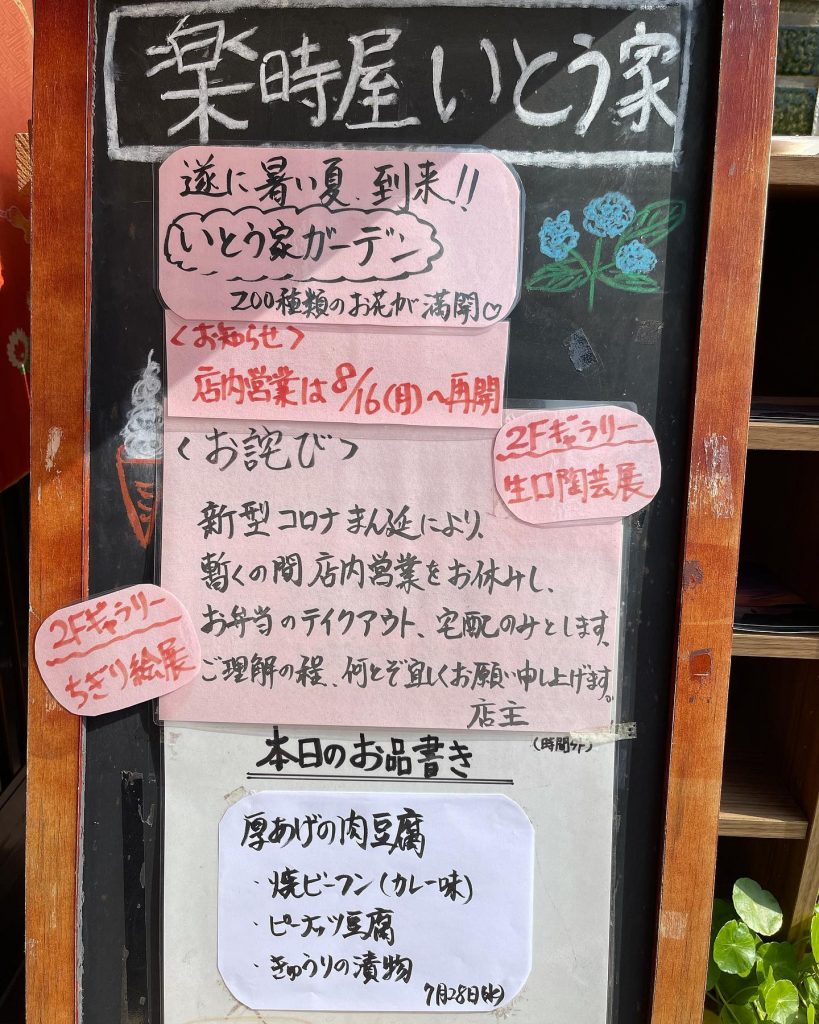 楽時屋いとう家
遂に暑い夏、到来!!
いとう家ガーデン
200種類のお花が満開♡
<お知らせ>
店内営業は8/16(月)〜再開
2Fギャラリー
生口陶芸展
<お詫び>
新型コロナまん延により、
暫くの間店内営業をお休みし、
お弁当のテイクアウト、宅配のみとします。
ご理解の程、何とぞ宜しくお願い申し上げます。
店主
2Fギャラリー
ちぎり絵展
本日のお品書き
厚あげの肉豆腐
・焼ビーフン(カレー味)
・ピーナッツ豆腐
・きゅうりの漬物
7月28日(水)